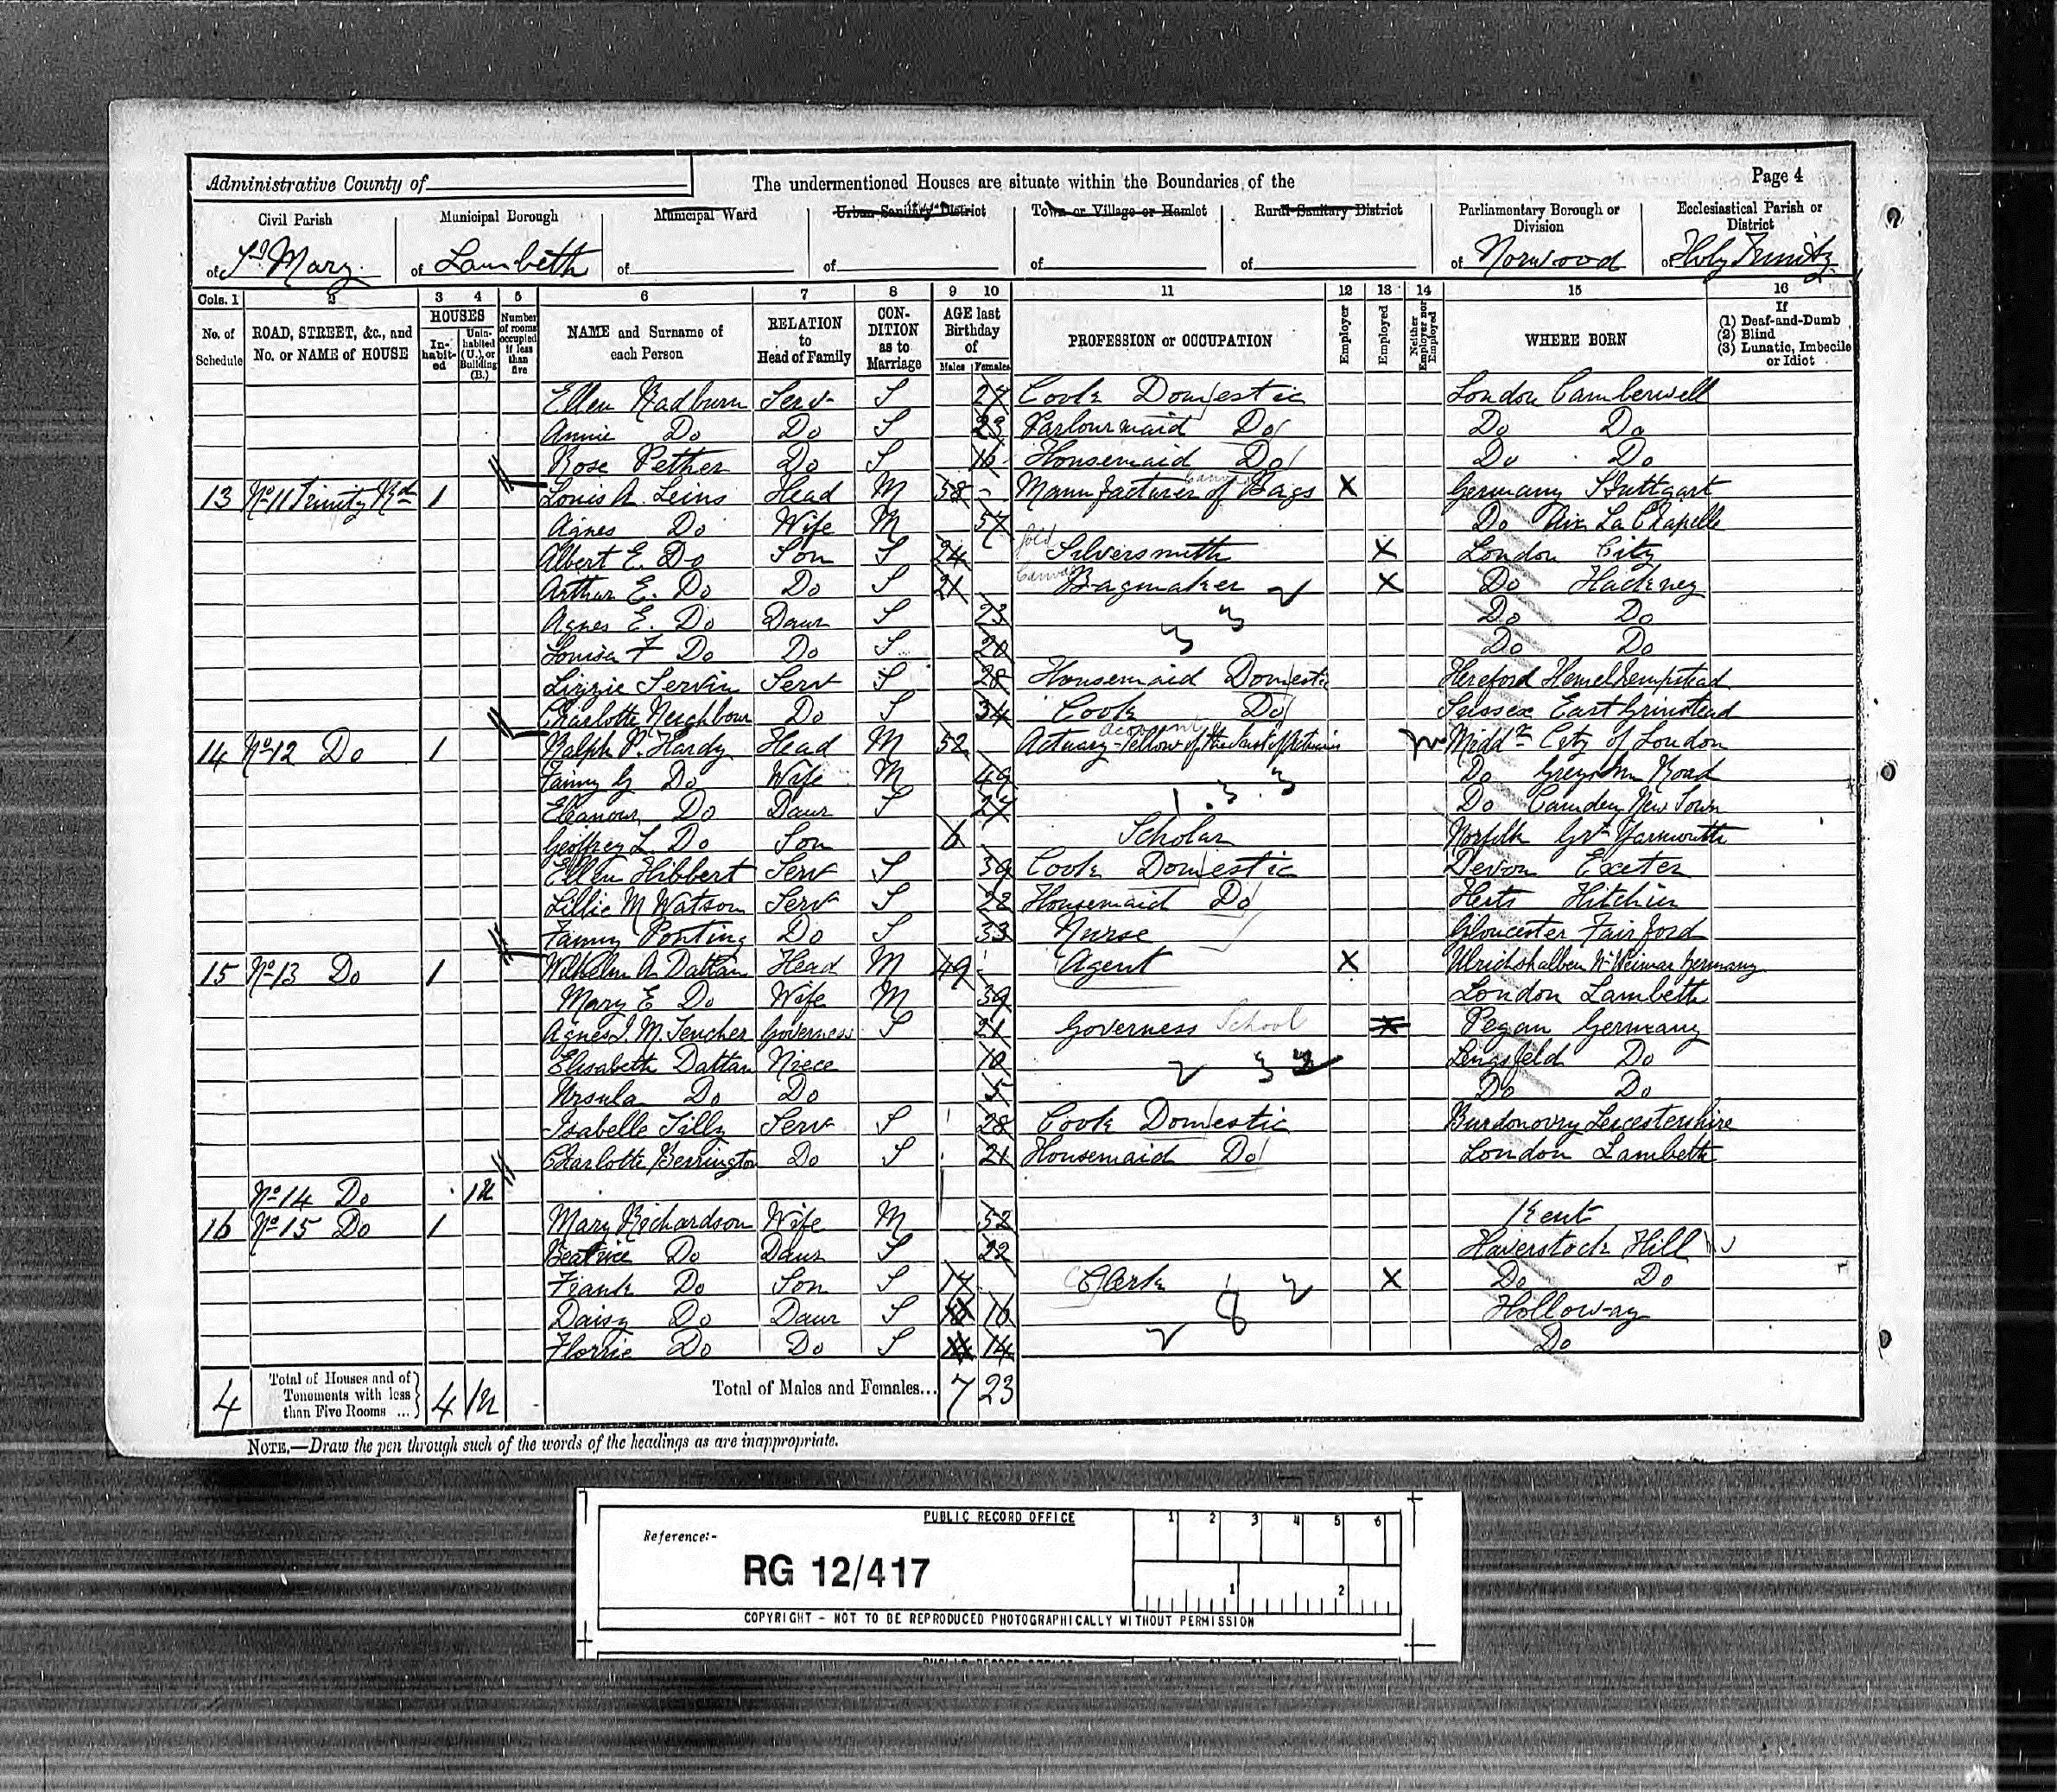 Administrative County of The undermentioned Houses are situate within the Boundaries of the Page 4
Civil Parish Municipal Borough Municipal Ward Urban Sanitary District Town or Village or Hamlet Rural Sanitary District Parliamentary Borough or Division Ecclesiastical Parish or District
of St Mary of Lambeth of of of of of Norwood of Holy Trinity
Cols. 1 2 3 4 5 6 7 8 9 10 11 12 13 14 15 16
No. of Schedule ROAD, STREET, &c., and No. or NAME of HOUSE HOUSES Inhabited Uninhabited (U.), or Building (B.) Number of rooms occupied if less than five NAME and Surname of each Person RELATION to Head of Family CONDITION as to Marriage AGE last Birthday of Males Females PROFESSION or OCCUPATION Employer Employed Neither Employer nor Employed WHERE BORN If (1) Deaf-and-Dumb (2) Blind (3) Lunatic, Imbecile or Idiot
Ellen Radburn Serv S 27 Cook Domestic London Camberwell
Annie Do Do S 23 Parlourmaid Do Do Do
Rose Pether Do S 16 Housemaid Do Do Do
13 No 11 Trinity Rd 1 Louis A. Leins Head M 58 Manufacturer of Canvas Bags X Germany Stuttgart
Agnes Do Wife M 57 Do Aix La Chapelle
Albert E. Do Son S 24 Gold Silversmith X London City
Arthur E. Do Do S 21 Canvas Bagmaker X Do Hackney
Agnes E. Do Daur S 23 Do Do
Louisa F Do Do S 20 Do Do
Lizzie Servin Serv S 28 Housemaid Domestic Hereford Hemelhempstead
Charlotte Neighbour Do S 34 Cook Do Sussex East Grinstead
14 No 12 Do 1 Ralph P. Hardy Head M 52 Actuary - Fellow of the Inst of Actuaries Middx City of London
Fanny G Do Wife M 49 Do Grays Inn Road
Eleanour Do Daur S 27 Do Camden New Town
Geoffrey L. Do Son 6 Scholar Norfolk Gt Yarmouth
Ellen Hibbert Serv S 39 Cook Domestic Devon Exeter
Lillie M Watson Serv S 22 Housemaid Do Herts Hitchin
Fanny Ponting Do S 33 Nurse Gloucester Fairford
15 No 13 Do 1 Wilhelm A Dattan Head M 49 Agent X Ulrichshalben Nr Weimar Germany
Mary E Do Wife M 39 London Lambeth
Agnes I. M. Tencher Governess S 21 Governess School X Pegau Germany
Elisabeth Dattan Niece 10 Lengsfeld Do
Ursula Do Do 5 Do Do
Isabelle Tilly Serv S 28 Cook Domestic Burdonovry Leicestershire
Charlotte Berrington Do S 21 Housemaid Do London Lambeth
No 14 Do 1U
16 No 15 Do 1 Mary Richardson Wife M 52 Kent
Beatrice Do Daur S 22 Haverstock Hill
Frank Do Son S 17 Clerk X Do Do
Daisy Do Daur S 16 Holloway
Florrie Do Do S 14 Do
4 Total of Houses and of Tenements with less than Five Rooms ... 4 1U Total of Males and Females... 7 23
NOTE.—Draw the pen through such of the words of the headings as are inappropriate.
PUBLIC RECORD OFFICE 1 2 3 4 5 6
Reference:-
RG 12/417
1 2
COPYRIGHT - NOT TO BE REPRODUCED PHOTOGRAPHICALLY WITHOUT PERMISSION